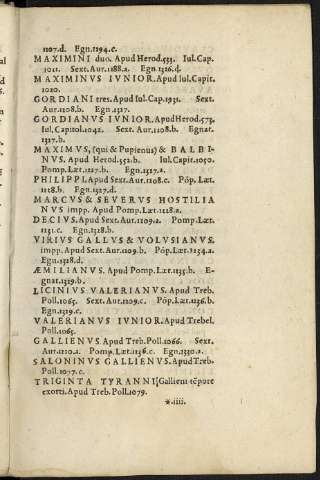 1107.d. Egn.1294.c.
MAXIMINI duo. Apud Herod.533. Iul. Cap.
1011. Sext. Aur.1188.a. Egn.1316.d.
MAXIMINVS IVNIOR. Apud Iul. Capit.
1020.
GORDIANI tres. Apud Iul. Cap.1931. Sext.
Aur.1108.b. Egn.1317.
GORDIANVS IVNIOR. Apud Herod.573.
Iul. Capitol.1042. Sext. Aur.1108.b. Egnat.
1317.b.
MAXIMVS, (qui & Pupienus) & BALBI-
NVS. Apud Herod.552.b. Iul. Capit.1050.
Pomp. Læt.1127.b. Egn.1317.a.
PHILIPPI. Apud Sext. Aur.1108.c. Pōp. Læt.
1128.b. Egn.1317.d.
MARCVS & SEVERVS HOSTILIA
NVS impp. Apud Pomp. Læt.1128.a.
DECIVS. Apud Sext. Aur.1109.a. Pomp. Læt.
1131.c. Egn.1318.b.
VIRIVS GALLVS & VOLVSIANVS.
impp. Apud Sext. Aur.1109.b. Pōp. Læt.1134.a.
Egn.1318.d.
ÆMILIANVS. Apud Pomp. Læt.1135.b. E-
gnat.1319.b.
LICINIVS VALERIANVS. Apud Treb.
Poll.1065. Sext. Aur.1109.c. Pōp. Læt.1136.b.
Egn.1319.c.
VALERIANVS IVNIOR. Apud Trebel.
Poll.1065.
GALLIENVS. Apud Treb. Poll.1066. Sext.
Aur.1110.a. Pomp. Læt.1136.c. Egn.1330.a.
SALONINVS GALLIENVS. Apud Treb.
Poll.1077.c.
TRIGINTA TYRANNI Gallieni tēpore
exorti. Apud Treb. Poll.1079.
*.iiii.